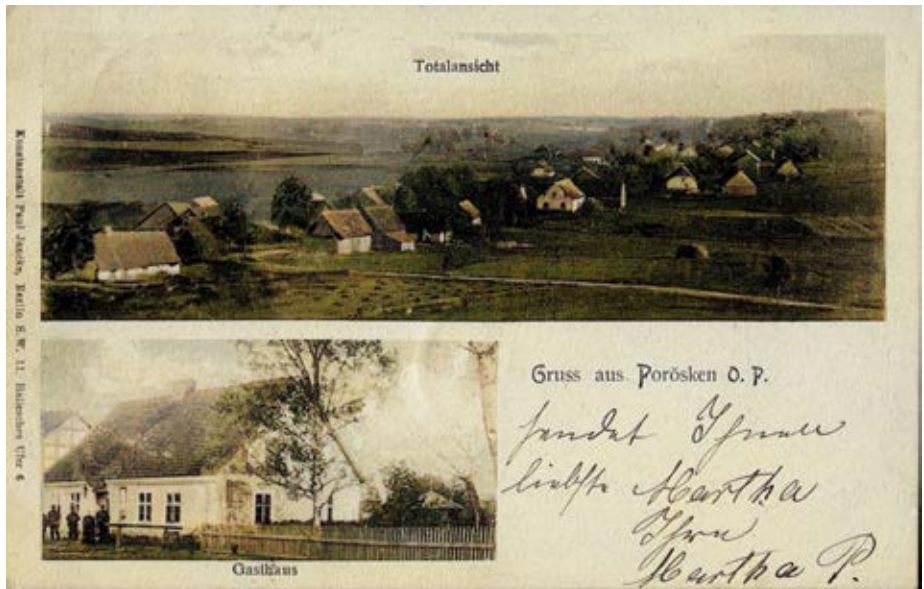 Totalansicht
Kunstanstalt Paul Jancke, Berlin S.W. 11. Hallesches Ufer 6
Gasthaus
Gruss aus Porösken O. P.
sendet Ihnen
liebste Martha
Ihre
Martha P.